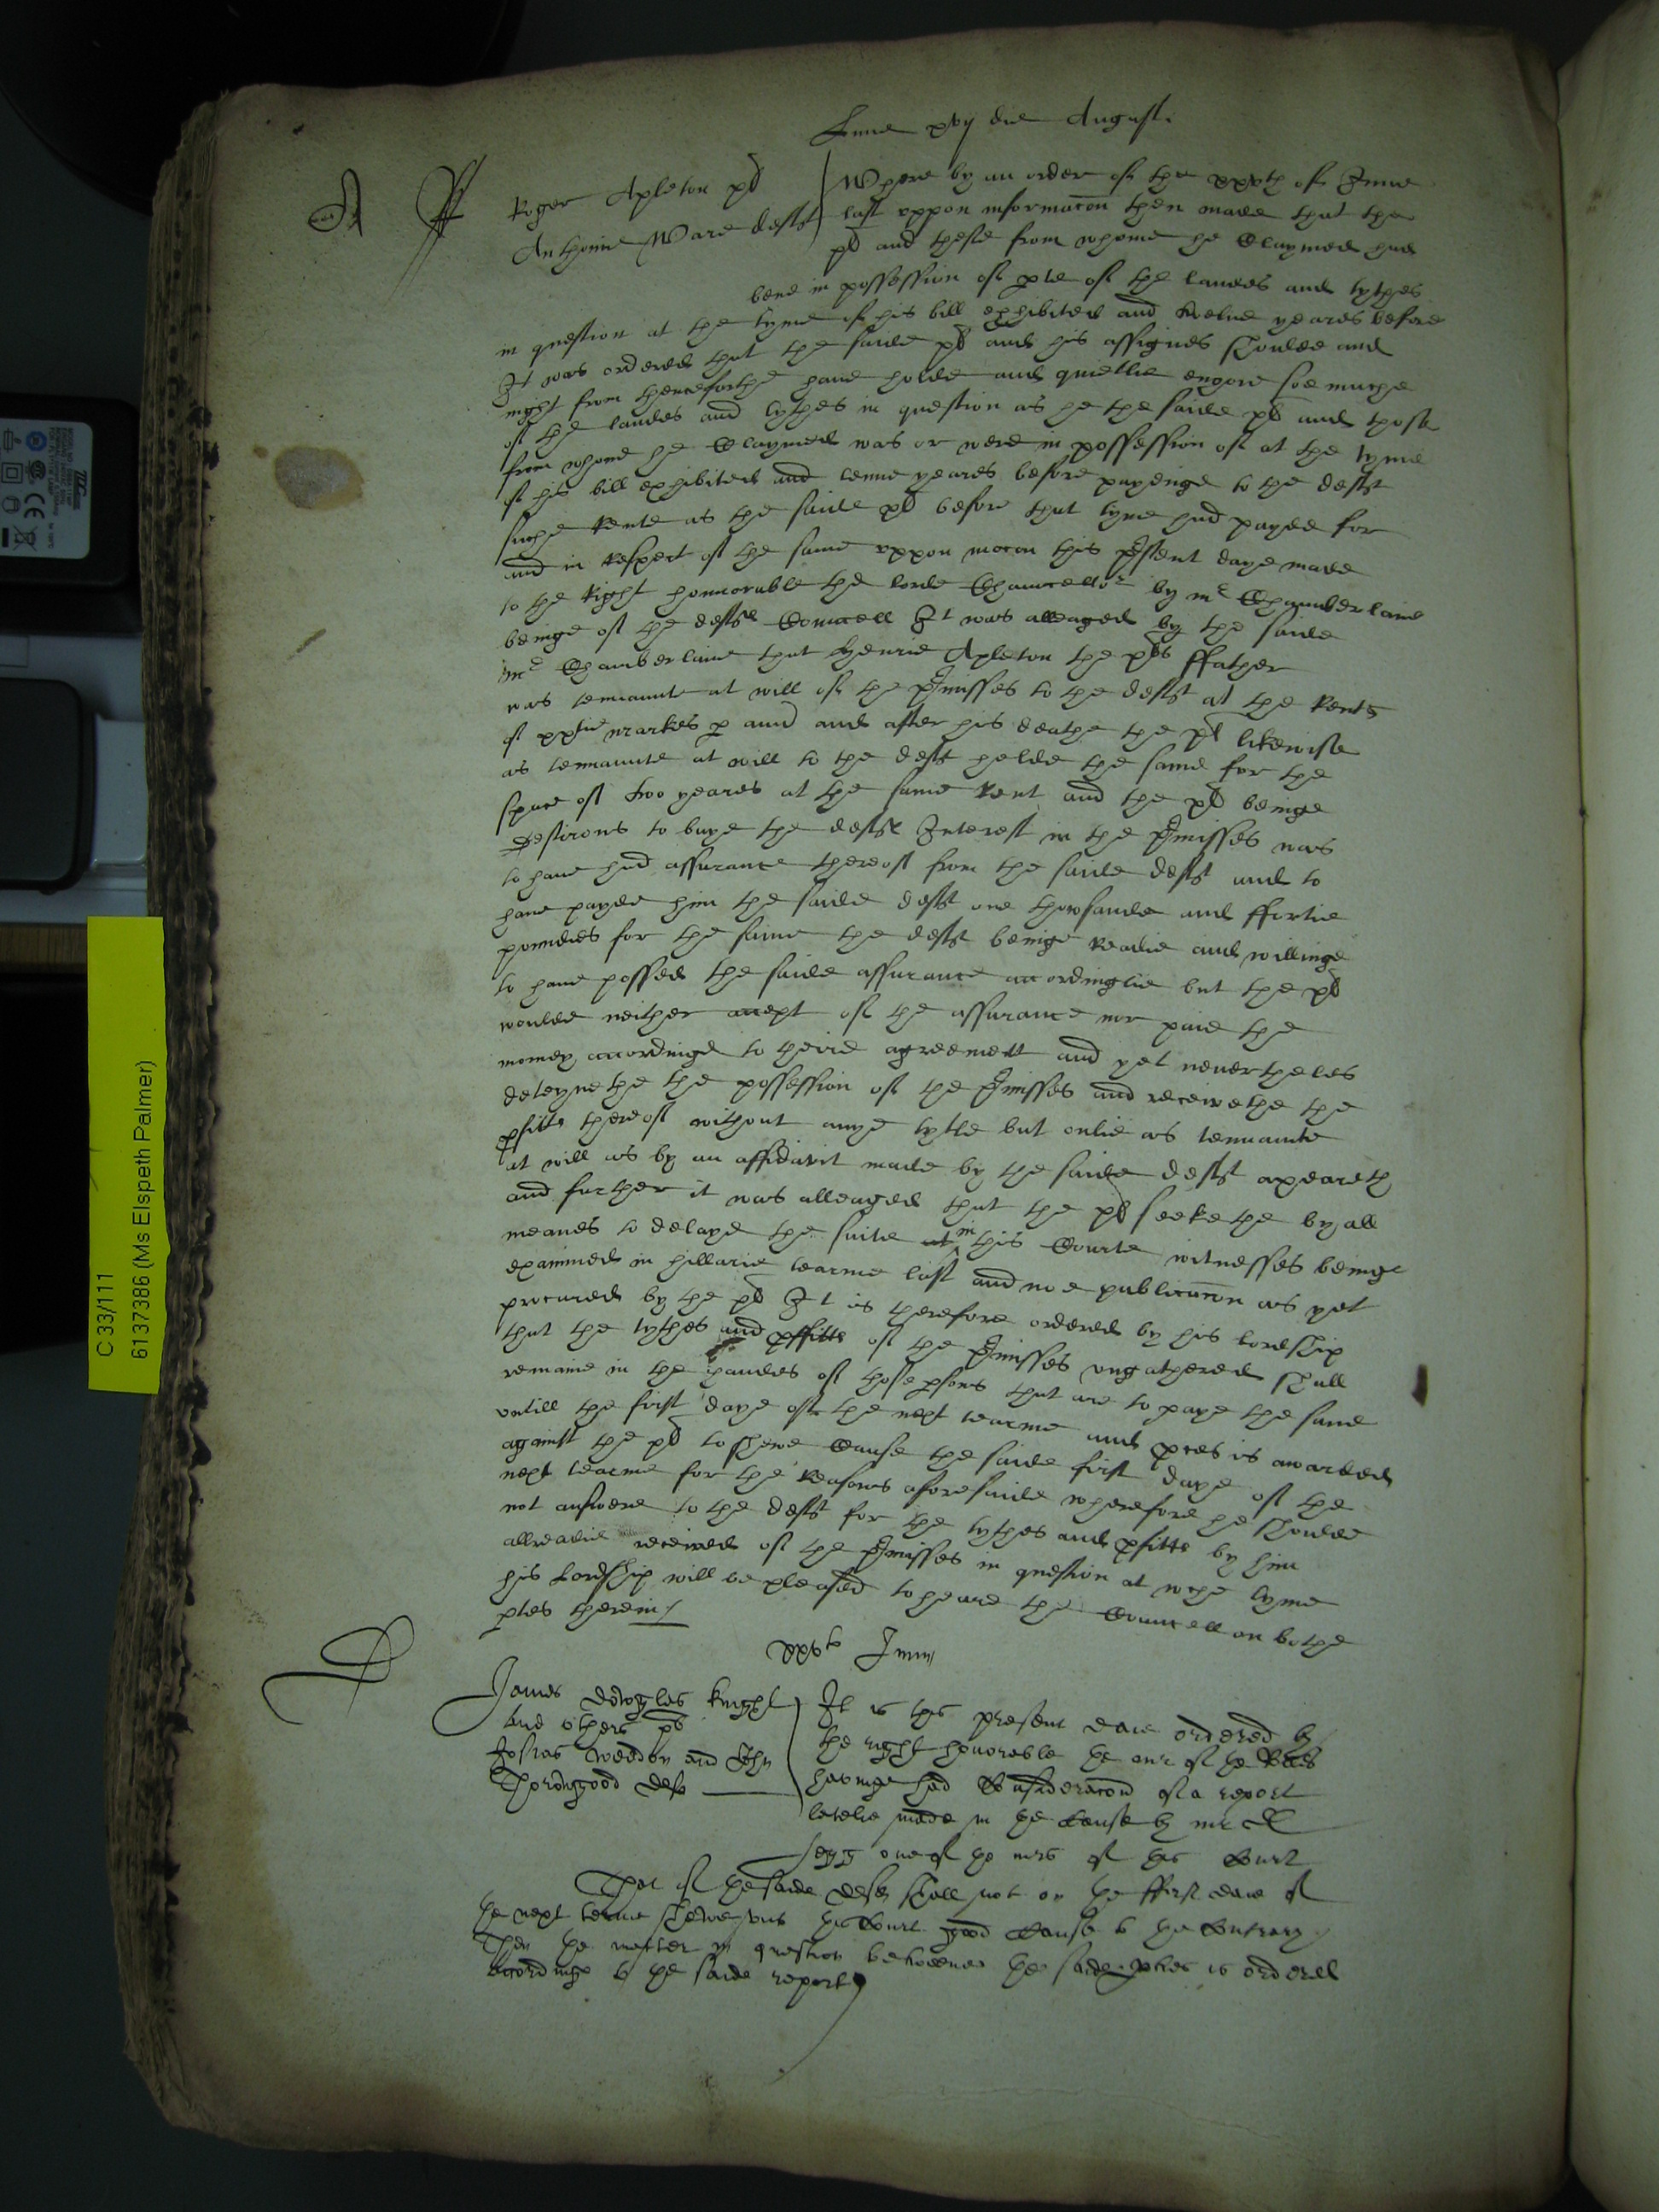 Lune xvij die Augusti
Roger Apleton pl
Anthonie Ware deft
Where by an order of the xxvth of June
last vppon informacon then made that the
pl and these from whome he Claymed had
bene in possession of pte of the landes and tythes
in question at the tyme of his bill exhibited and twelue yeares before
It was ordered that the saide pl and his assignes shoulde and
might from thenceforthe haue holde and quietlie enioye soe muche
of the landes and tythes in question as he the saide pl and those
from whome he Claymed was or were in possession of at the tyme
of his bill exhibited and tenne yeares before payenge to the deft
suche Rente as the saide pl before that tyme had payde for
and in respect of the same vppon mocon this pssent daye made
to the Right honnorable the lorde Chauncellor by mr Chamberlaine
beinge of the defts Councell It was alleaged by the saide
mr Chamberlaine that Henrie Apleton the pls ffather
was tennaunte at will of the pmisses to the deft at the Rente
of markes p ann and after his deathe the pl likewise
as tennaunte at will to the deft helde the same for the
space of two yeares at the same Rent and the pl beinge
desirous to buye the defts Interest in the pmisses was
to haue had assurance thereof from the saide deft and to
haue payde him the saide deft one thowsande and ffortie
poundes for the same the deft beinge Readie and willinge
to haue possed the saide assurance accordinglie but the pl
woulde neither accept of the assurance nor paie the
money accordinge to theire agreemett and yet neuertheles
deteynethe the possession of the pmisses and receivethe the
pfitts thereof without anye tytle but onlie as tennaunte
at will as by an affidavit made by the saide deft apeareth
and further it was alleaged that the pl seekethe by all
meanes to delaye the suite at in this Courte witnesses beinge
examined in hillarie tearme last and noe publicacon as yet
procured by the pl It is therefore ordered by his lordship
that the tythes and pffitts of the pmisses vngathered shall
remaine in the handes of those psons that are to paye the same
vntill the first daye of the next tearme and pces is awarded
against the pl to shewe Cause the saide first daye of the
next tearme for the Reasons aforesaide wherefore he shoulde
not answere to the deft for the tythes and pfitts by him
allreadie received of the pmisses in question at wche tyme
his Lordship will be pleased to heare the Councell on bothe
ptes therein
xxvto Junij
James knight
and others pls
Josias and John
Thorowgood defts
It is this present daie ordered by
the right honorable the mr of the Rolls
havinge had Consideracond of a report
latelie made in the Cause by mr
one of the mrs of this Court
That if the saide defts shall not on the ffirst daie of
the next terme shewe vnto this Court good Cause to the Contrary
Then the matter in question betweene the saide pties is ordered
accordinge to the saide report
C 33/111
6137386 (Ms Elspeth Palmer)